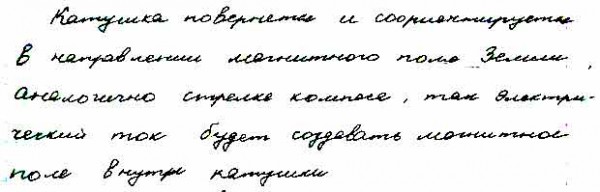 Катушка повернется и сориентируется
в направлении магнитного поля Земли,
аналогично стрелке компаса, так электри-
ческий ток будет создавать магнитное
поле внутри катушки